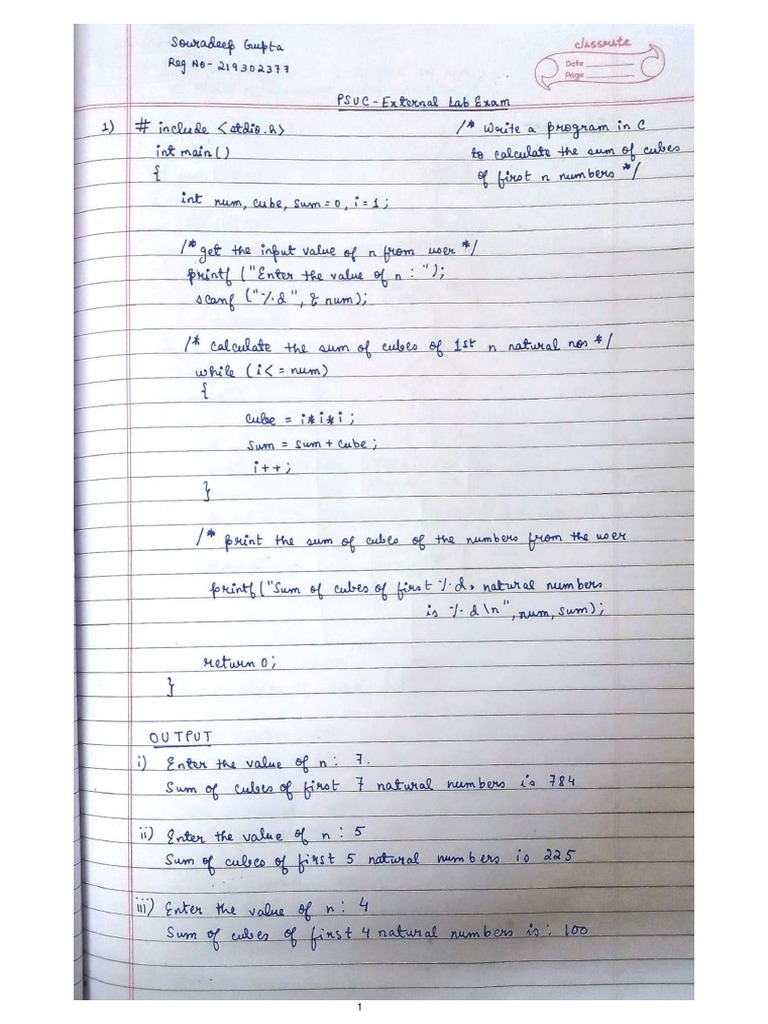 Souradeep Gupta
Reg No- 219302377
classmate
Date
Page
PSUC - External Lab Exam
1) # include <stdio.h> /* Write a program in C
int main() to calculate the sum of cubes
{ of first n numbers */
int num, cube, sum=0, i=1;
/* get the input value of n from user */
printf ("Enter the value of n : ");
scanf ("%d", & num);
/* calculate the sum of cubes of 1st n natural nos */
while (i<= num)
{
cube = i*i*i ;
sum = sum + cube ;
i++;
}
/* print the sum of cubes of the numbers from the user
printf("Sum of cubes of first %d. natural numbers
is %d \n", num, sum);
return 0;
}
OUTPUT
i) Enter the value of n: 7.
Sum of cubes of first 7 natural numbers is 784
ii) Enter the value of n: 5
Sum of cubes of first 5 natural numbers is 225
iii) Enter the value of n: 4
Sum of cubes of first 4 natural numbers is: 100
1